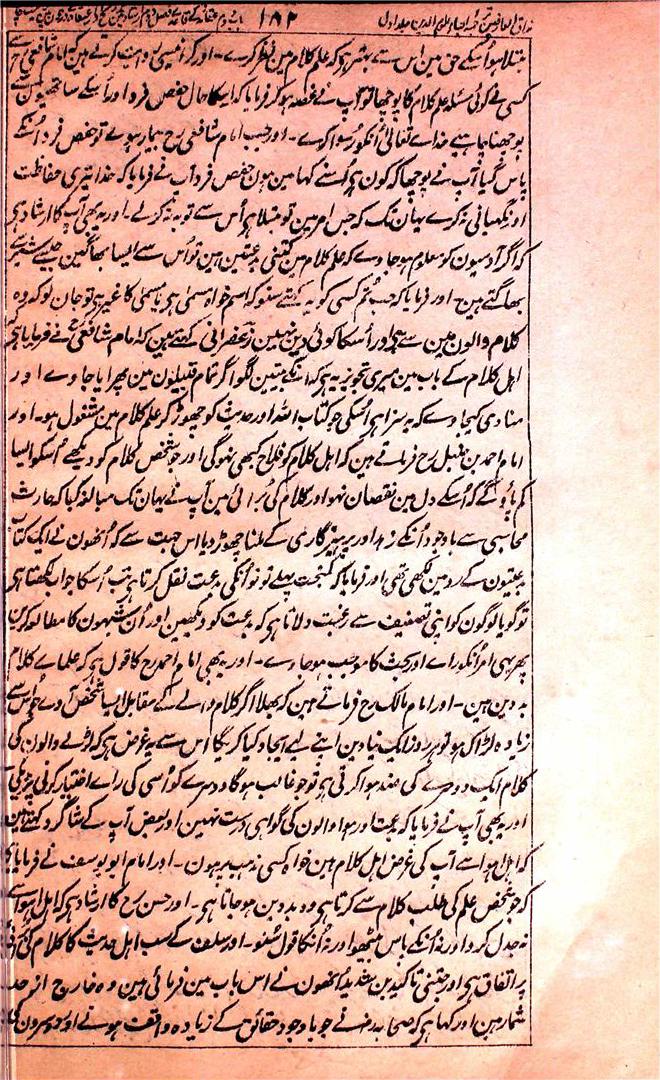 مذاق العارفین ترجمہ احیاء علوم الدین جلد اول ۱۸۲ باب دوم عقائد کے
مبتلا ہو اسکے حق مین اس سے بہتر ہو کہ علم کلام مین نظر کرے۔ اور کرابیسی روایت کرتے ہین کہ امام شافعی رح سے
کسی نے کوئی مسئلہ علم کلام کا پوچھا تو آپ نے غصہ ہو کر فرمایا کہ اسکا حال حفص فرد اور اُسکے ساتھیون سے
پوچھنا چاہیے خداے تعالی اُنکو رسوا کرے۔ اور جب امام شافعی رح بیمار ہوے تو حفص فرد اُنکے
پاس گیا آپ نے پوچھا کہ کون ہی اُسنے کہا مین ہون حفص فرد آپ نے فرمایا کہ خدا تیری حفاظت
اور نگہبانی نکرے یہان تک کہ جس امر مین تو مبتلا ہی اُس سے توبہ نہ کرلے۔ اور یہ بھی آپ کا ارشاد ہی
کہ اگر آدمیون کو معلوم ہو جاوے کہ علم کلام مین کتنی بدعتین ہین تو اُس سے ایسا بھاگین جیسے شیر سے
بھاگتے ہین۔ اور فرمایا کہ جب تم کسی کو یہ کہتے سنو کہ اسم خواہ مسمی ہی یا مسمی کا غیر ہی تو جان لو کہ وہ
کلام والون مین سے ہی اور اُسکا کوئی دین نہین زعفرانی کہتے ہین کہ امام شافعی رح نے فرمایا ہی کہ
اہل کلام کے باب مین میری تجویز یہ ہی کہ انکے بیتین لگوا کر تمام قبیلون مین پھرایا جاوے اور
منادی کیجاوے کہ یہ سزا ہی اُسکی جو کتاب اللہ اور حدیث کو چھوڑ کر علم کلام مین مشغول ہو۔ اور
امام احمد بن حنبل رح فرماتے ہین کہ اہل کلام کو فلاح کبھی نہوگی اور جو شخص کلام کو دیکھے اُسکو ایسا
کم پاؤگے کہ اُسکے دل مین نقصان نہو اور کلام کی بُرائی مین آپ نے یہان تک مبالغہ کیا کہ حارث
محاسبی سے باوجود اُنکے زہد اور پرہیزگاری کے ملنا چھوڑ دیا اس جہت سے کہ اُنھون نے ایک کتاب
بدعتیون کے رد مین لکھی تھی اور فرمایا کہ کمبخت پہلے تو تو اُنکی بدعت نقل کرتا ہی تب اُسکا جواب لکھتا ہی
تو گویا لوگون کو اپنی تصنیف سے رغبت دلاتا ہی کہ بدعت کو دیکھین اور اُن شبہون کا مطالعہ کرین
پھر یہی امر اُنکو راے اور بحث کا موجب ہو جاوے۔ اور یہ بھی امام احمد رح کا قول ہی کہ علماے کلام
بد دین ہین۔ اور امام مالک رح فرماتے ہین کہ بھلا اگر کلام والے کے مقابل ایسا شخص آوے جو اُس سے
زیادہ لڑاک ہو تو ہر روز ایک نیا دین اپنے لیے ایجاد کیا کریگا اس سے یہ غرض ہی کہ لڑنے والون کی
کلام ایک دوسرے کی ضد ہوا کرتی ہی تو جو غالب ہوگا دوسرے کو اُسی کی راے اختیار کرنی پڑیگی
اور یہ بھی آپ نے فرمایا کہ بدعت اور ہوا والون کی گواہی درست نہین اور بعض آپ کے شاگرد کہتے ہین
کہ اہل ہوا سے آپ کی غرض اہل کلام ہین خواہ کسی مذہب پر ہون۔ اور امام ابو یوسف نے فرمایا ہی
کہ جو شخص علم کی طلب کلام سے کرتا ہی وہ بد دین ہو جاتا ہی۔ اور حسن رح کا ارشاد ہی کہ اہل ہوا سے
نہ جدل کرو اور نہ اُنکے پاس بیٹھو اور نہ اُنکا قول سُنو۔ اور سلف کے سب اہل حدیث کا کلام کی بُرائی
پر اتفاق ہی اور جتنی تاکیدین شدید اُنھون نے اس باب مین فرمائی ہین وہ خارج از حد
شمار ہین اور کہا ہی کہ صحابہ رض نے جو باوجود حقائق کے زیادہ واقف ہونے اور دوسرون کی